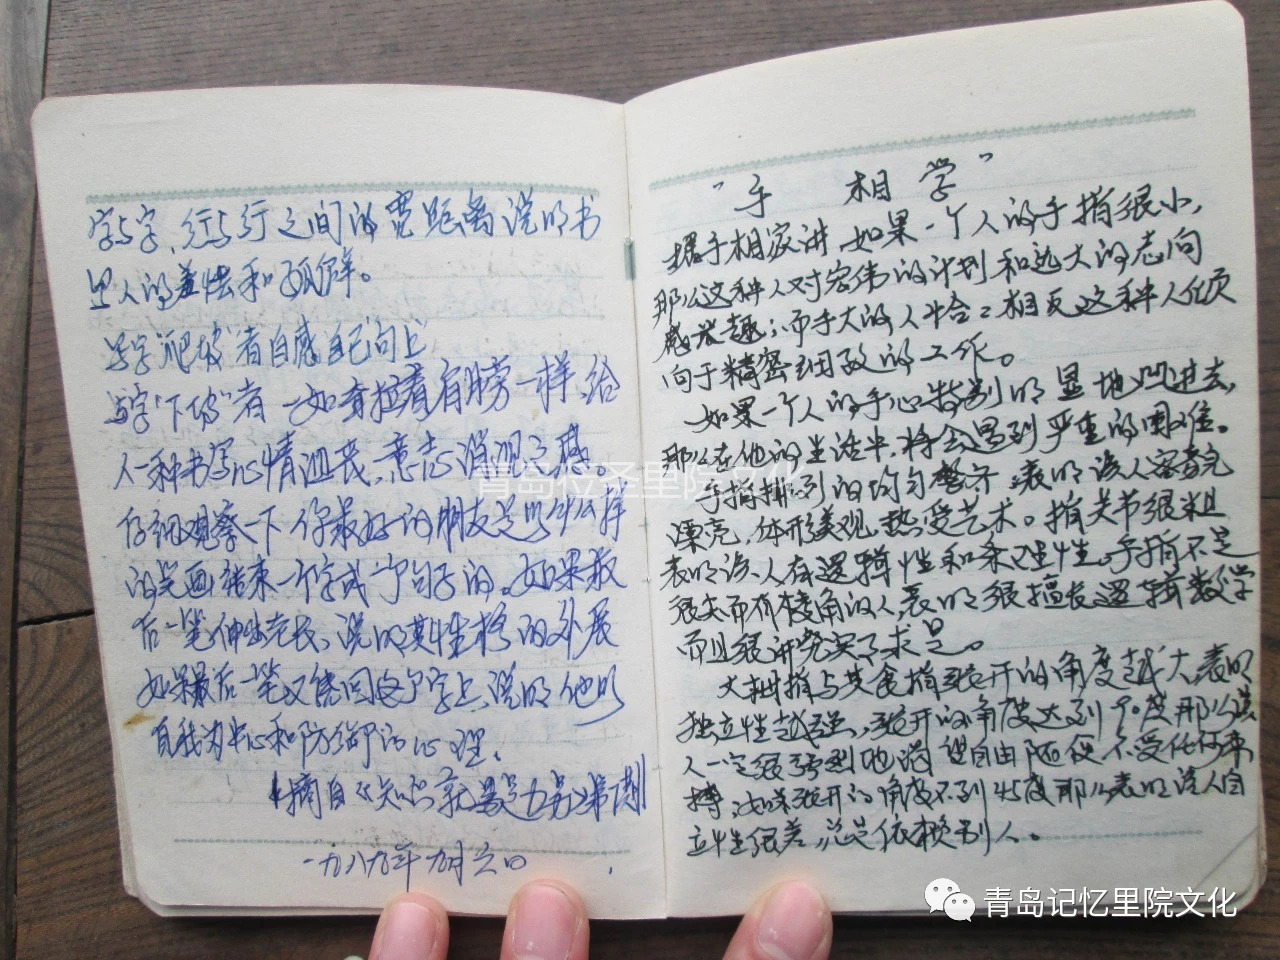 字与字、行与行之间的宽距离说明书
里人的善性和
写字"爬坡"者自感自己向上
写字"下坡"者 一如 有 一样,给
人一种书写心情沮丧,意志消沉之感。
仔细观察一下你最好的朋友是以什么样
的笔画结束一个字或一个句子的。如果最
后一笔伸出老长,说明其性格的外展
如果最后一笔又能回这个字上,说明他以
自我为中心和防御的心理。
《摘自《知识就是力量》第 期
一九八九年九月六日
"手 相 学"
据手相家讲,如果一个人的手指很小,
那么这种人对宏伟的计划和远大的志向
感兴趣;而手大的人恰恰相反这种人倾
向于精密细致的工作。
如果一个人的手心特别明显地凹进去,
那么在他的生活中,将会遇到严重的困难。
手指排列的均匀整齐 表明该人容貌
漂亮,体形美观,热爱艺术。指关节很粗
表明该人有逻辑性和条理性。手指不是
很尖而有棱角的人表明很擅长逻辑数学
而且很讲究实事求是。
大拇指与其食指张开的角度越大,表明
独立性越强,张开的角度达到90度那么该
人一定很强烈地渴望自由随便,不受任何束
缚,如果张开的角度不到45度那么表明该人自
立性很差,总是依赖别人。
青岛记忆里院文化